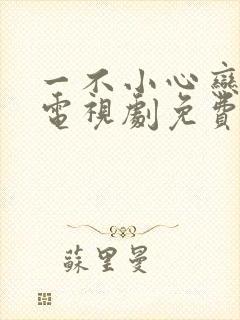 一不小心戀
電視劇免費
蘇里曼